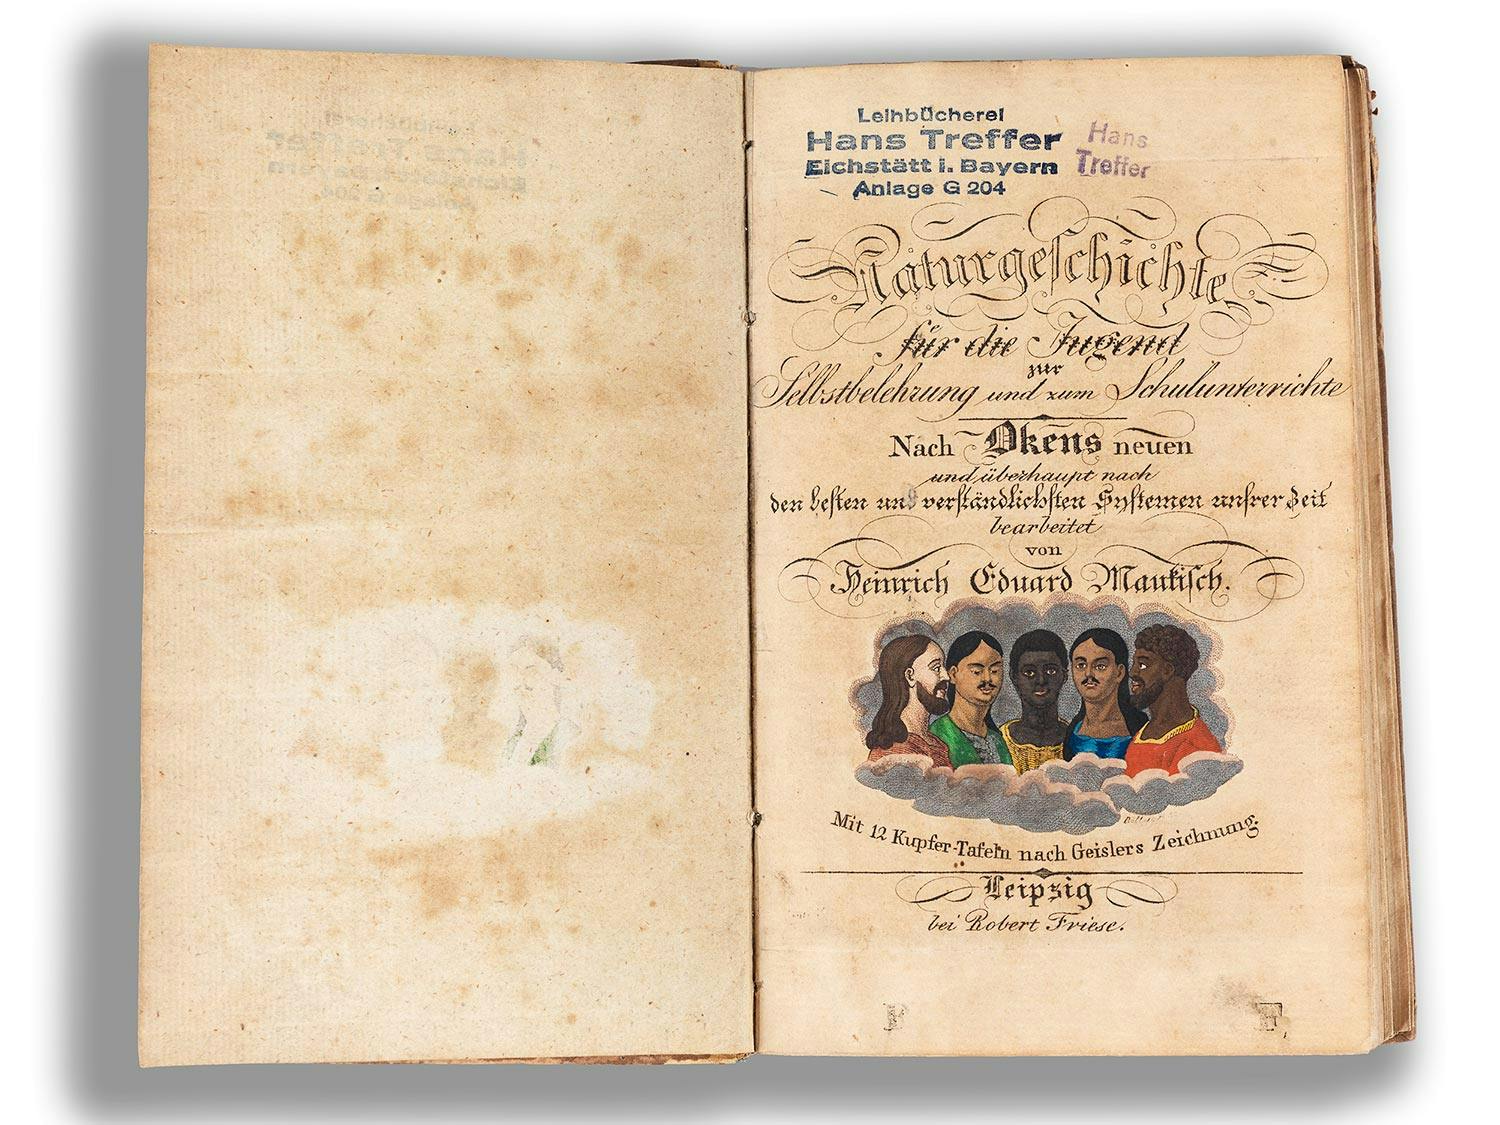 Leihbücherei
Hans Treffer
Eichstätt i. Bayern
Anlage G 204
Hans
Treffer
Naturgeschichte
für die Jugend
zur
Selbstbelehrung und zum Schulunterrichte
Nach Okens neuen
und überhaupt nach
den besten und verständlichsten Systemen unsrer Zeit
bearbeitet
von
Heinrich Eduard Maukisch.
Mit 12 Kupfer-Tafeln nach Geislers Zeichnung.
Leipzig
bei Robert Friese.
F